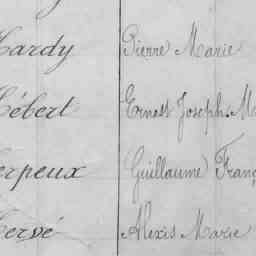 Hardy Pierre Marie
Hébert Ernest Joseph Ma
erpeux Guillaume Franç
Hervé Alexis Marie